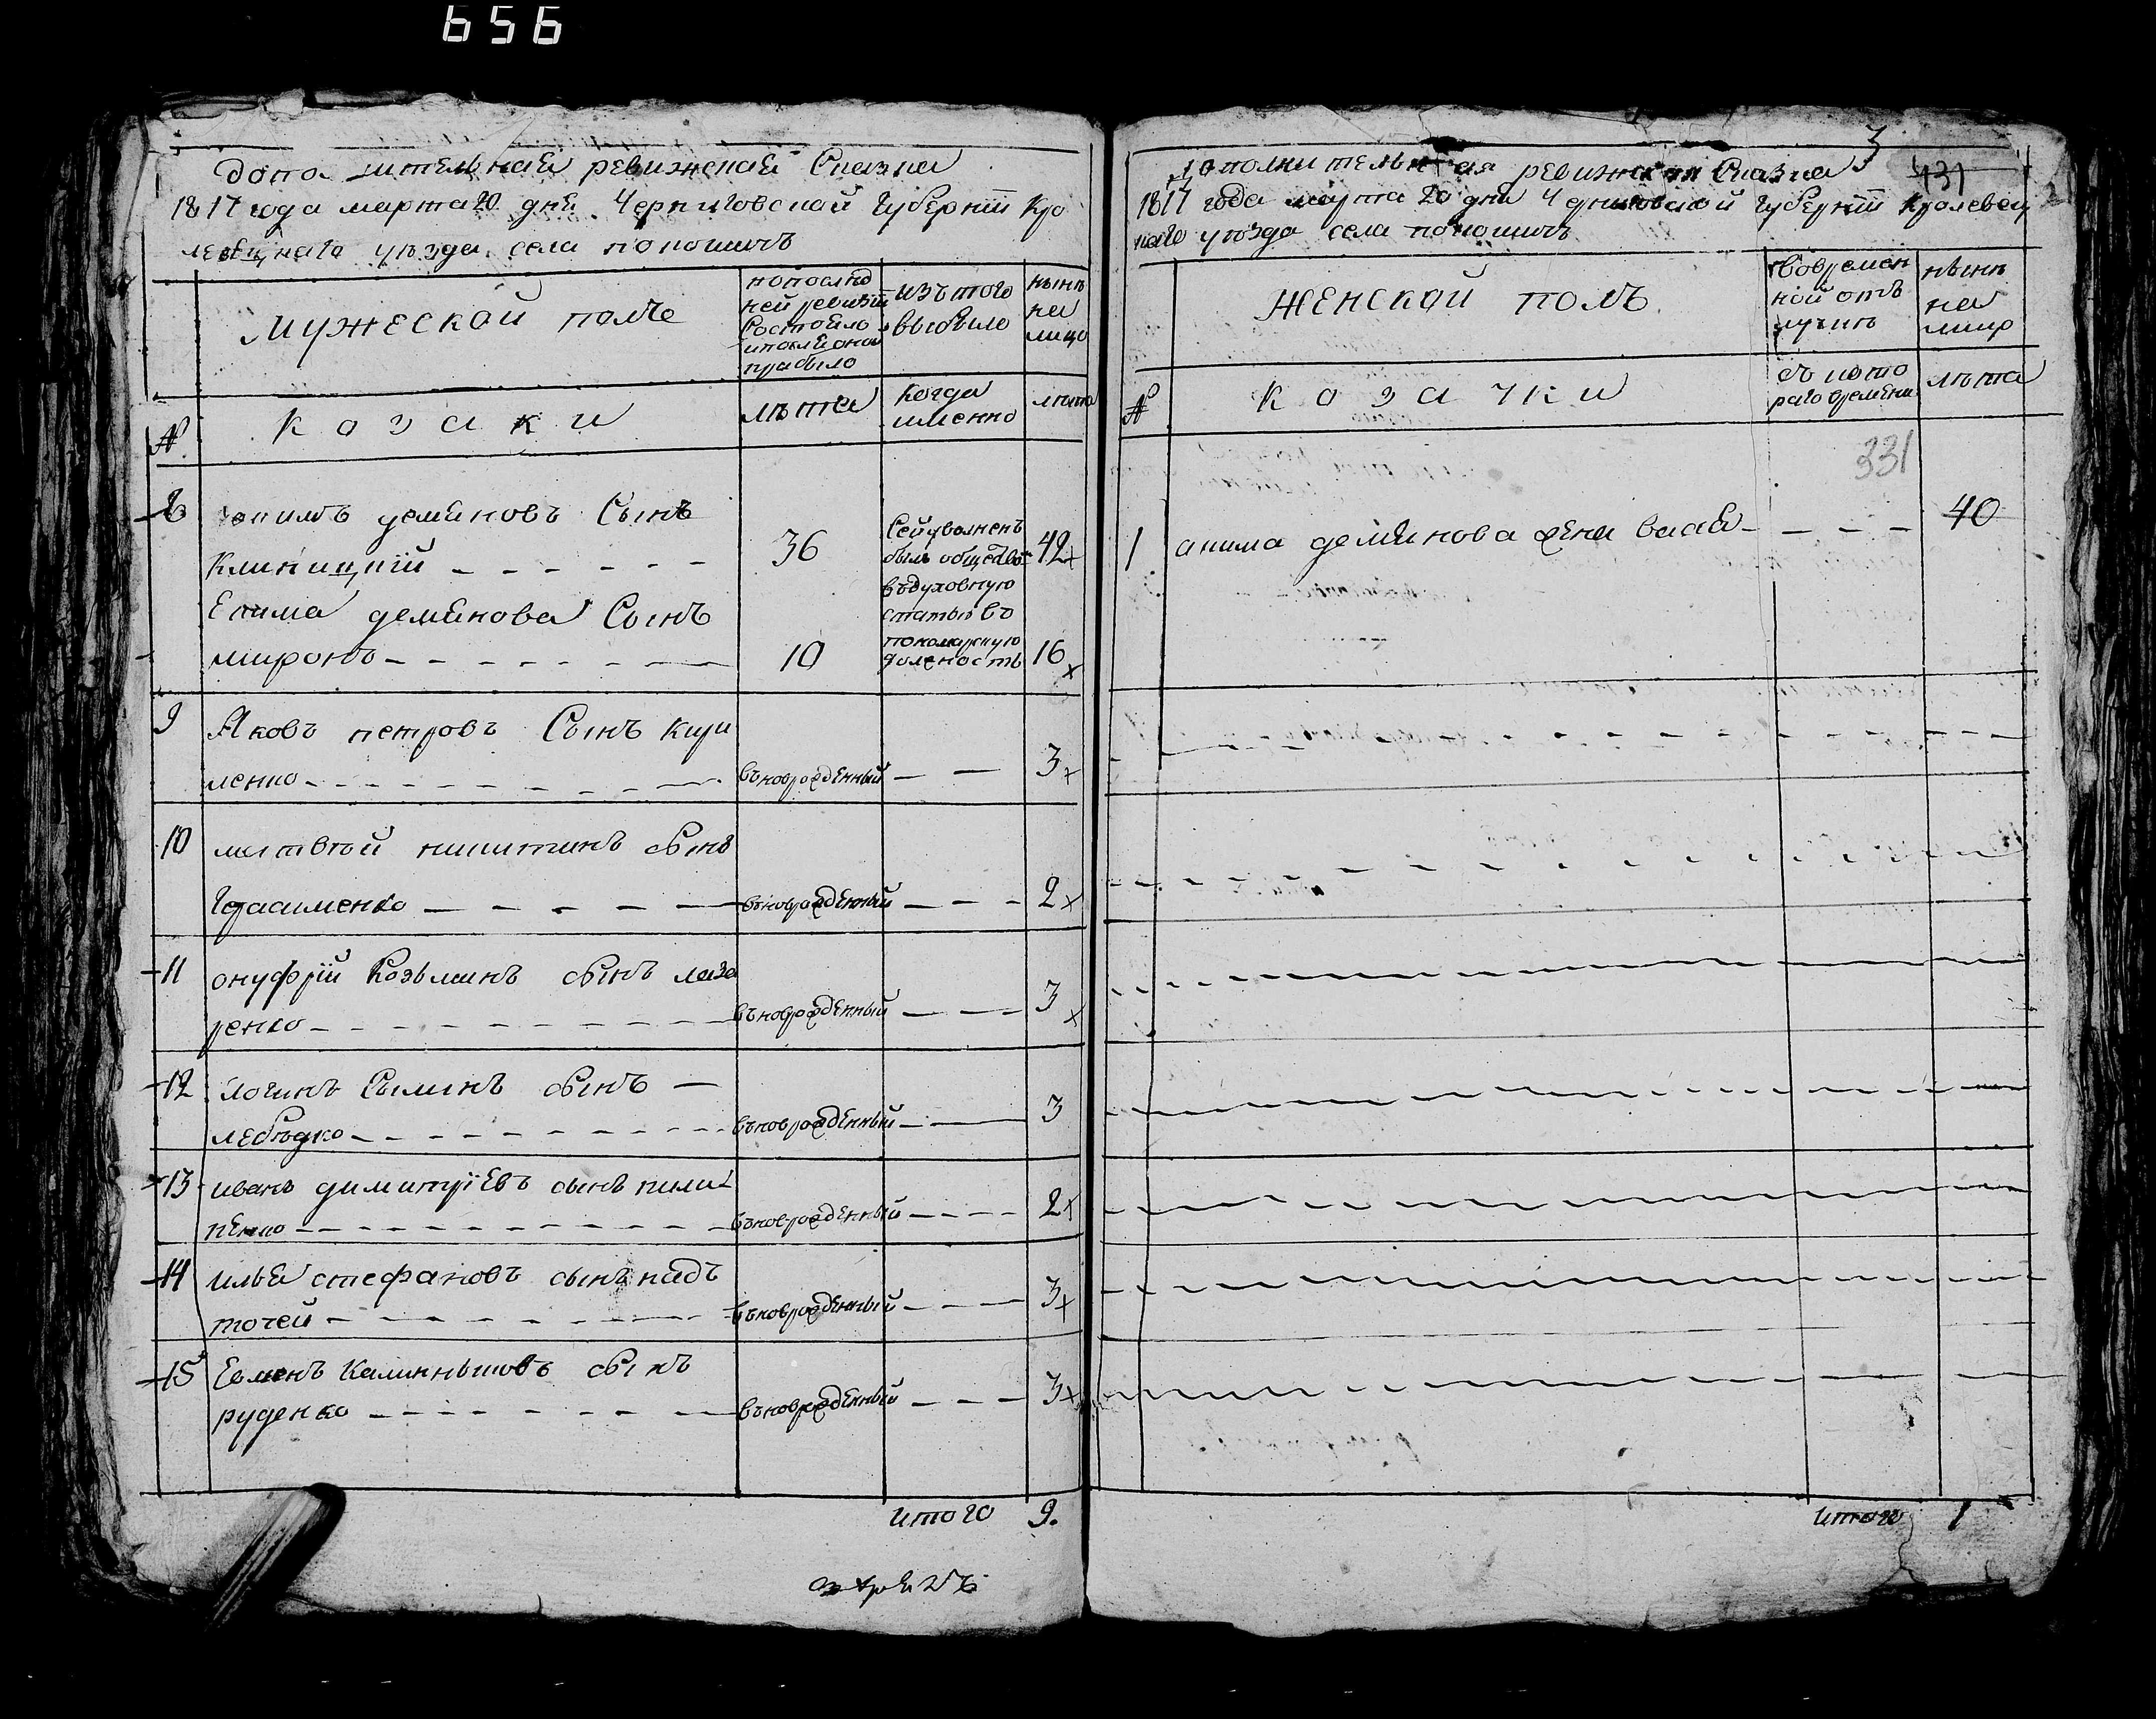 656
Допол нительная ревижская Сказка
1817 года марта 20 дня Черниговской Губернїи Кро
левецкаго уѣзда села поношилъ
мужеской полъ
попослѣд
ней ревизїи
Состояло
ипослѣоной
прибыло
изътого
выбыло
нынѣ
на
лицо
№
козаки
лѣта
когда
именно
лѣта
8
Деминовъ Сынъ
клипицкїй
36
Сейуволненъ
былъ общество
въдуховную
статью во
пономарскую
долѐность
42
Екима деминова Сынъ
миронъ
10
16
9
Яковъ петровъ Сынъ кири
ленко
вьноврожденный
3
10
матвѣй никитинъ сынъ
Герасименко
вьноврожденный
2
11
онуфрїй Козьминъ сынъ лаза
ренко
вьноврожденный
3
12
логинъ Саминъ сынъ
лебѣдко
вьноврожденный
3
13
иванъ димитрїевъ сынъ пили
пенко
вьноврожденный
2
14
илья стефановъ сынъ надъ
точей
вьноврожденный
3
15
сынъ
руденко
вьноврожденный
3
итого 9.
3
431
Дополнительная ревижская Сказка
1817 года марта 20 дня Черниговской Губернїи Кролевец
каго уѣзда села поношилъ
женской полъ
Вовремен
ной отъ
лучкѣ
нынѣ
на
лицо
№
козачки
съ кото
раго времени
лѣта
331
1
акима деминова жена васса
40
итого 1